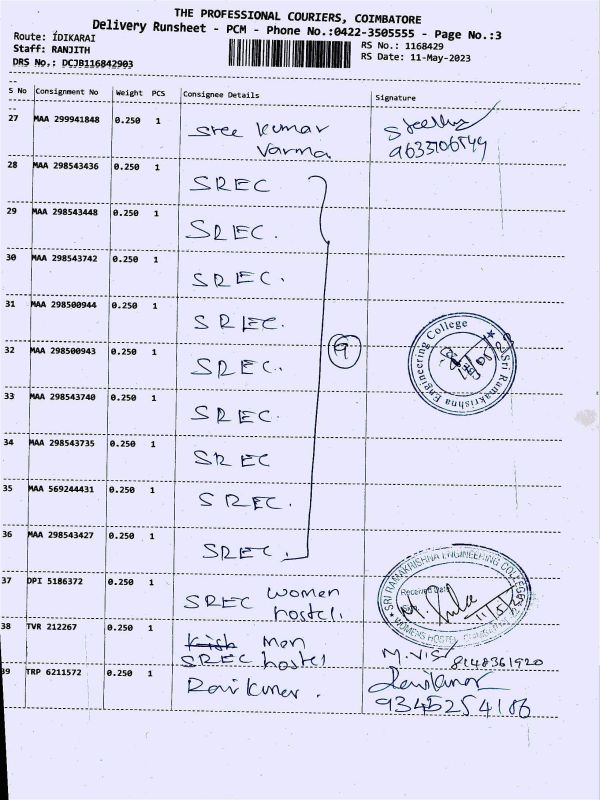 THE PROFESSIONAL COURIERS, COIMBATORE
Delivery Runsheet - PCM - Phone No.:0422-3505555 - Page No.:3
Route: IDIKARAI
Staff: RANJITH
DRS No.: DCJB116842903
RS No.: 1168429
RS Date: 11-May-2023
S No Consignment No Weight PCS Consignee Details Signature
27 MAA 299941848 0.250 1 Sree Kumar
Varma
28 MAA 298543436 0.250 1 SREC
29 MAA 298543448 0.250 1 SREC.
30 MAA 298543742 0.250 1 SREC.
31 MAA 298500944 0.250 1 SREC.
32 MAA 298500943 0.250 1 SREC.
9
33 MAA 298543740 0.250 1 SREC.
34 MAA 298543735 0.250 1 SREC
35 MAA 569244431 0.250 1 SREC.
36 MAA 298543427 0.250 1 SREC.
Sri Ramakrishna Engineering College
37 DPI 5186372 0.250 1 SREC women
hostel.
SRI RAMAKRISHNA ENGINEERING COLLEGE
WOMENS HOSTEL
Received
11/5/23
38 TVR 212267 0.250 1 men
SREC hostel
8148361920
39 TRP 6211572 0.250 1 Ravikumar.
Ravikumar
9345254186